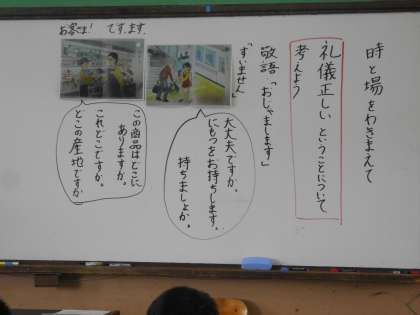 時と場をわきまえて
礼儀正しいということについて
考えよう
敬語「おじゃまします」
「すいません」
お客さま! です。ます。
大丈夫ですか。
にもつをお持ちします。
持ちましょか。
この商品はどこに
ありますか。
これどこですか。
どこの産地ですか